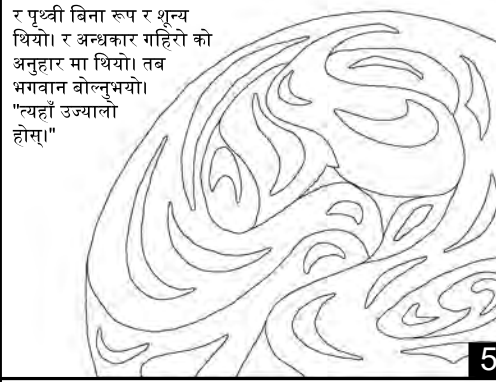 र पृथ्वी बिना रूप र शून्य
थियो। र अन्धकार गहिरो को
अनुहार मा थियो। तब
भगवान बोल्नुभयो।
"त्यहाँ उज्यालो
होस्।"
5